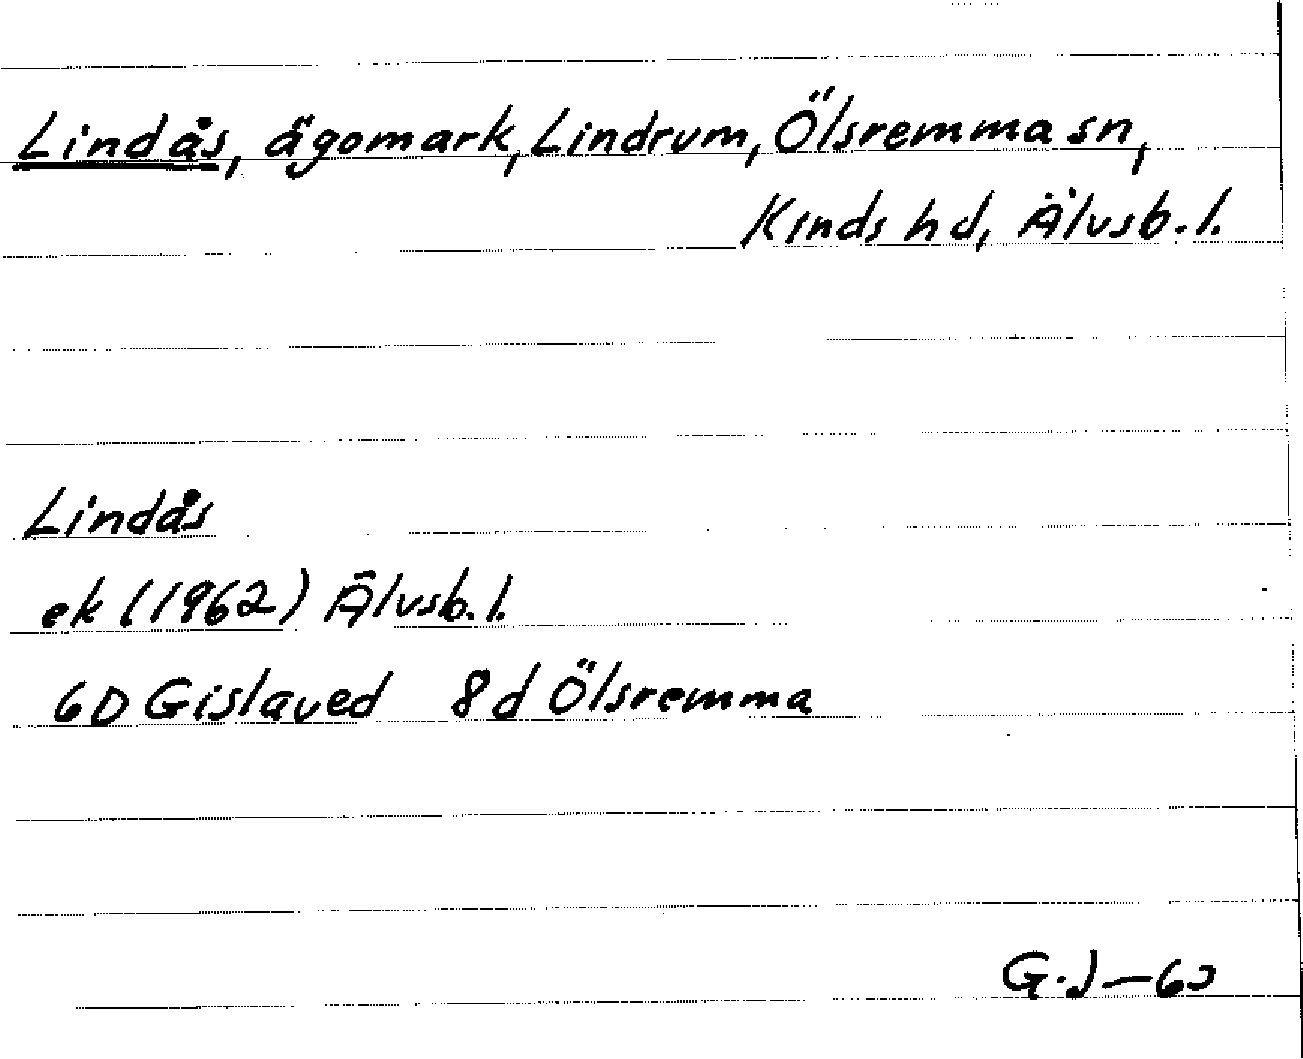 Lindås, ägomark, Lindrum, Ölsremma sn,
Kinds hd, Älvsb. l.
Lindås
ek (1962) Älvsb. l.
6D Gislaved 8d Ölsremma